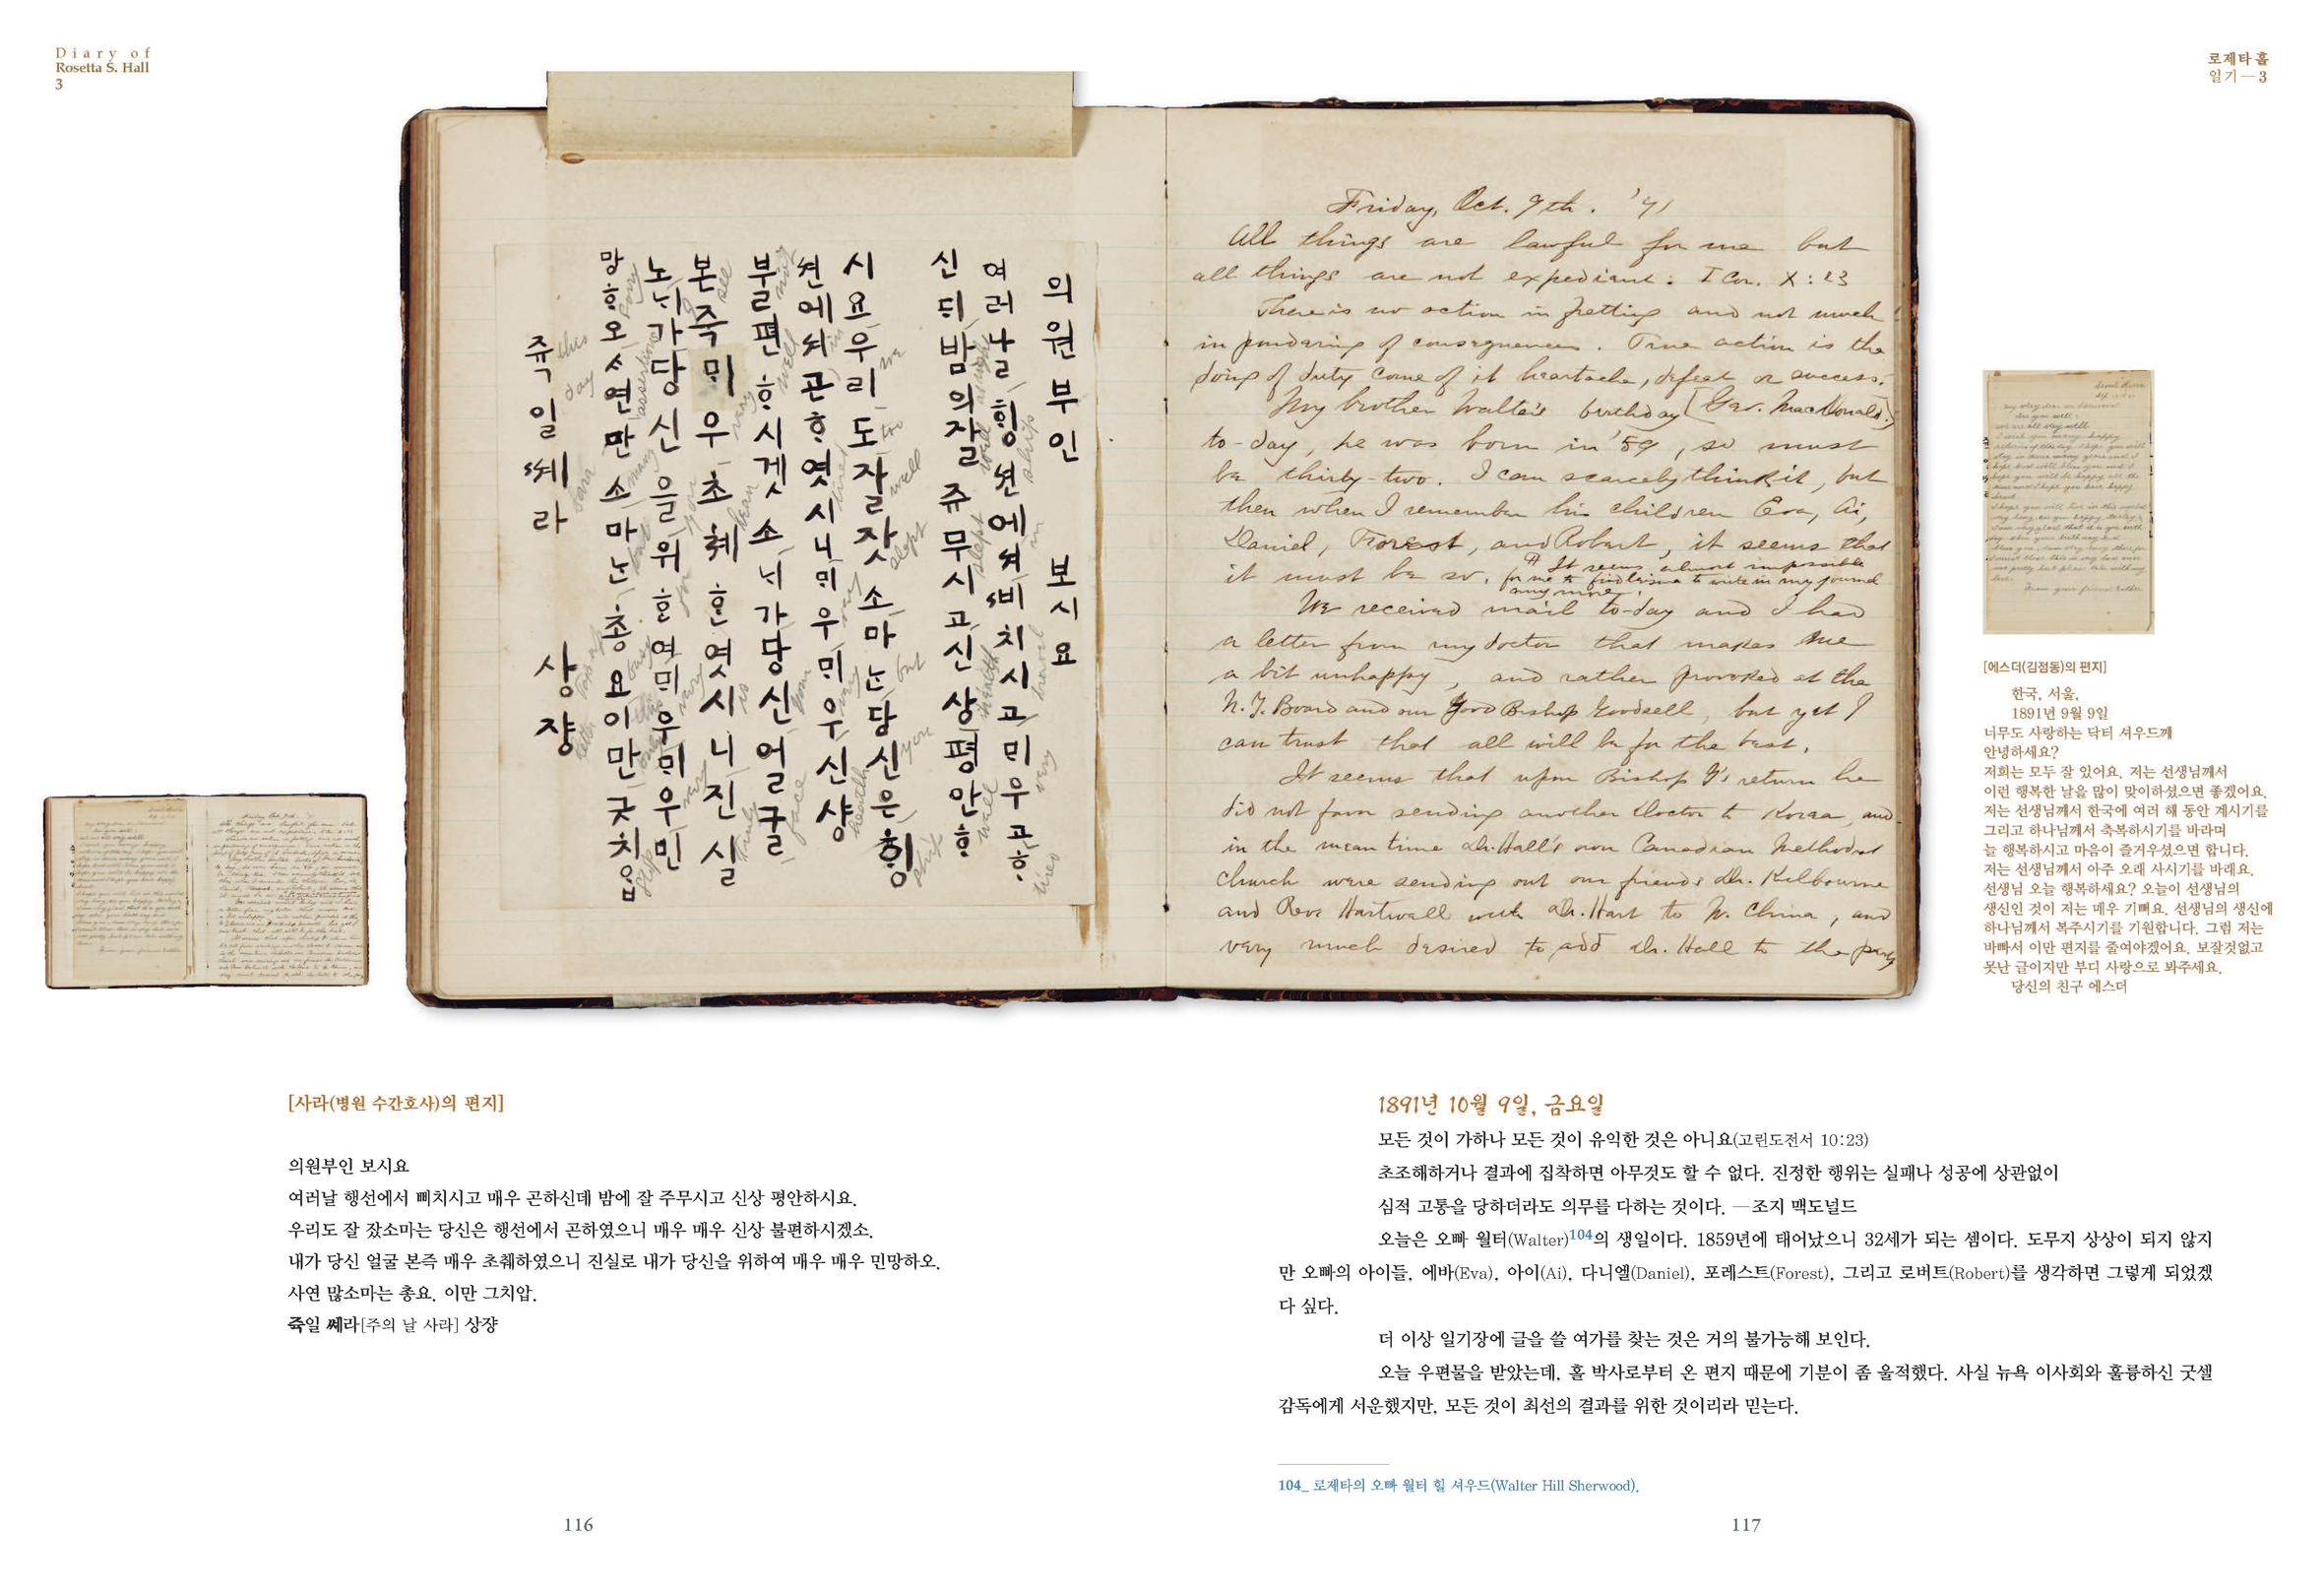 Diary of
Rosetta S. Hall
3
로제타 홀
일기 — 3
의원부인 보시요
여러날 힝션에셔 ᄲᅵ치시고 ᄆᆡ우 곤ᄒᆞ
신ᄃᆡ 밤의 잘 쥬무시고 신상 평안ᄒᆞ
시요 우리도 잘 잣소마ᄂᆞᆫ 당신은 힝
션에셔 곤ᄒᆞ엿시니 ᄆᆡ우 ᄆᆡ우 신샹
부ᄅᆞᆯ편ᄒᆞ시겟소 ᄂᆡ가 당신 얼굴
본즉 ᄆᆡ우 초췌ᄒᆞ엿시니 진실
노 ᄂᆡ가 당신을 위ᄒᆞ여 ᄆᆡ우 ᄆᆡ우 민
망ᄒᆞ오 ᄉᆞ연 만소마ᄂᆞᆫ 총요 이만 긋치ᄋᆞᆸ
쥭일 쎄라 상쟝
Friday, Oct. 9th. '91
All things are lawful for me but
all things are not expedient: I Cor. X:23
There is no action in fretting and not much
in pondering of consequences. True action is the
doing of duty come of it heartache, defeat or success.
My brother Walter's birthday [Geo. MacDonald.]
to-day, he was born in '59, so must
be thirty-two. I can scarcely think it, but
then when I remember his children Eva, Ai,
Daniel, Forrest, and Robert, it seems that
it must be so. It seems almost impossible
for me to find leisure to write in my journal
any more.
We received mail to-day and I had
a letter from my doctor that makes me
a bit unhappy, and rather provoked at the
N.Y. Board and our good Bishop Goodsell, but yet I
can trust that all will be for the best.
It seems that upon Bishop G's return he
did not favor sending another Doctor to Korea, and
in the mean time Dr. Hall's own Canadian Methodist
church were sending out our friends Dr. Kilbourne
and Rev. Hartwell with Dr. Hart to W. China, and
very much desired to add Dr. Hall to the party
[에스더(김점동)의 편지]
한국, 서울,
1891년 9월 9일
너무도 사랑하는 닥터 셔우드께
안녕하세요?
저희는 모두 잘 있어요. 저는 선생님께서
이런 행복한 날을 많이 맞이하셨으면 좋겠어요.
저는 선생님께서 한국에 여러 해 동안 계시기를
그리고 하나님께서 축복하시기를 바라며
늘 행복하시고 마음이 즐거우셨으면 합니다.
저는 선생님께서 아주 오래 사시기를 바래요.
선생님 오늘 행복하세요? 오늘이 선생님의
생신인 것이 저는 매우 기뻐요. 선생님의 생신에
하나님께서 복주시기를 기원합니다. 그럼 저는
바빠서 이만 편지를 줄여야겠어요. 보잘것없고
못난 글이지만 부디 사랑으로 봐주세요.
당신의 친구 에스더
[사라(병원 수간호사)의 편지]
의원부인 보시요
여러날 행선에서 삐치시고 매우 곤하신데 밤에 잘 주무시고 신상 평안하시요.
우리도 잘 잤소마는 당신은 행선에서 곤하였으니 매우 매우 신상 불편하시겠소.
내가 당신 얼굴 본즉 매우 초췌하였으니 진실로 내가 당신을 위하여 매우 매우 민망하오.
사연 많소마는 총요. 이만 그치압.
쥭일 쎄라[주의 날 사라] 상쟝
1891년 10월 9일, 금요일
모든 것이 가하나 모든 것이 유익한 것은 아니요(고린도전서 10:23)
초조해하거나 결과에 집착하면 아무것도 할 수 없다. 진정한 행위는 실패나 성공에 상관없이
심적 고통을 당하더라도 의무를 다하는 것이다. —조지 맥도널드
오늘은 오빠 월터(Walter)104의 생일이다. 1859년에 태어났으니 32세가 되는 셈이다. 도무지 상상이 되지 않지
만 오빠의 아이들, 에바(Eva), 아이(Ai), 다니엘(Daniel), 포레스트(Forest), 그리고 로버트(Robert)를 생각하면 그렇게 되었겠
다 싶다.
더 이상 일기장에 글을 쓸 여가를 찾는 것은 거의 불가능해 보인다.
오늘 우편물을 받았는데, 홀 박사로부터 온 편지 때문에 기분이 좀 울적했다. 사실 뉴욕 이사회와 훌륭하신 굿셀
감독에게 서운했지만, 모든 것이 최선의 결과를 위한 것이리라 믿는다.
104_ 로제타의 오빠 월터 힐 셔우드(Walter Hill Sherwood).
116
117